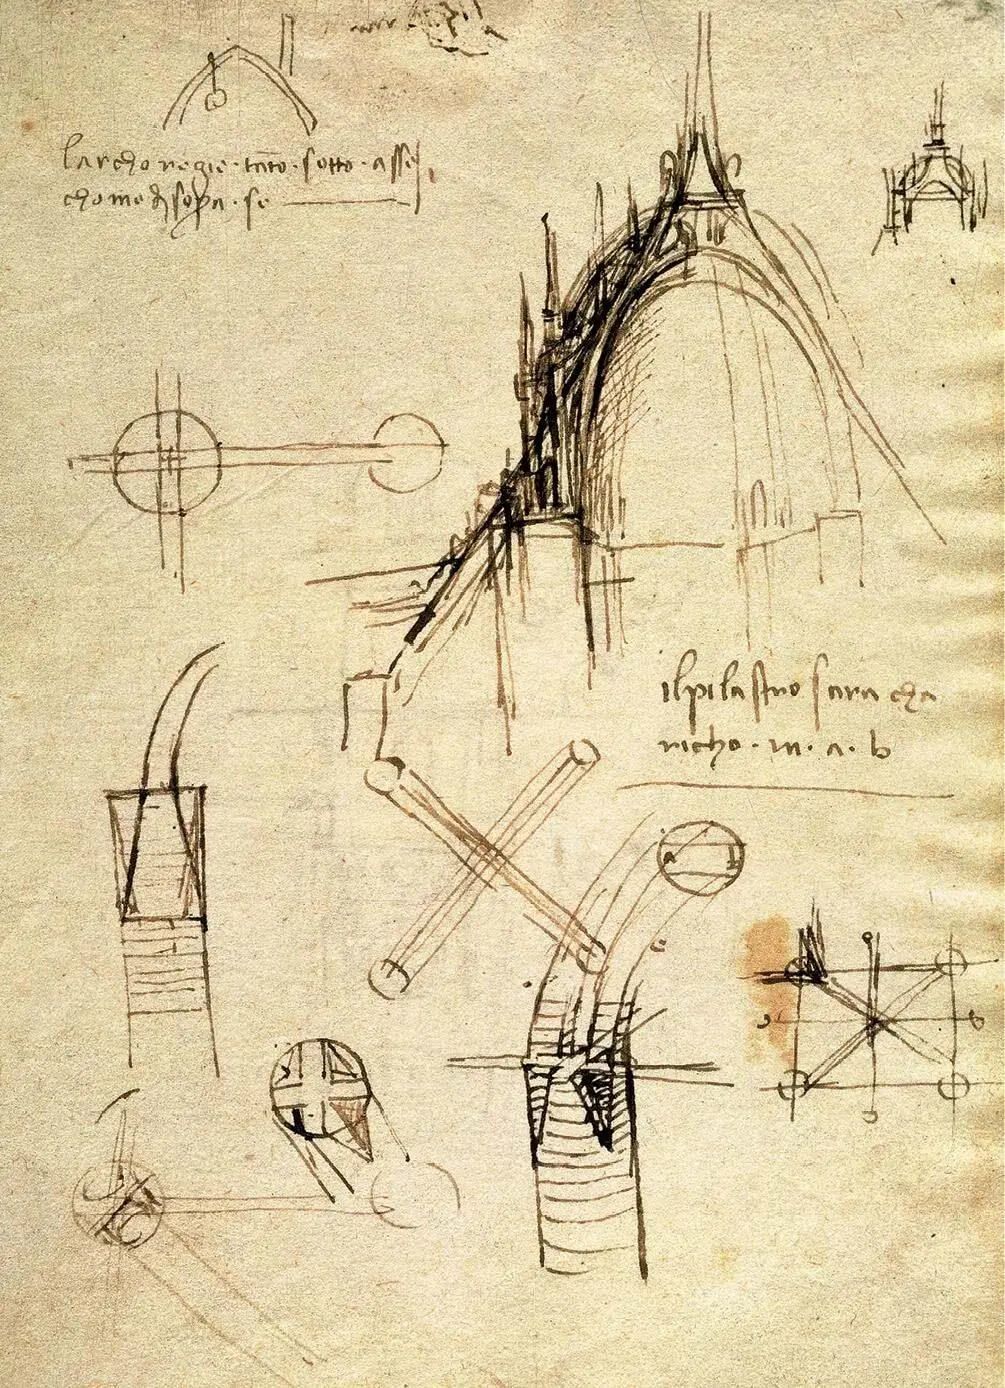 larcho regie · tāto · sotto · asse
chome di sopa · se
il pilastro sara cha
richo · in · a · b
a b